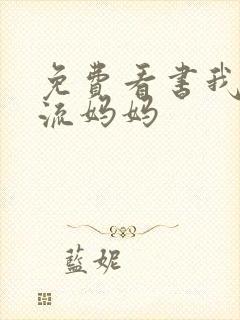 免费看书我
流妈妈
蓝妮